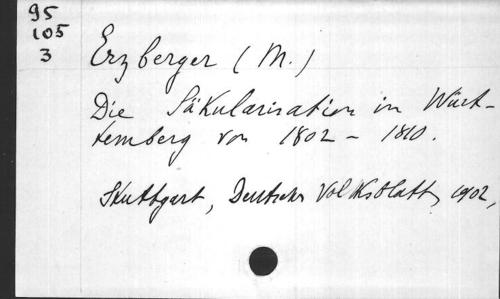 95
105
3
Erzberger (M.)
Die Säkularisation in Würt-
temberg von 1802 - 1810.
Stuttgart, Deutsches Volksblatt, 1902,